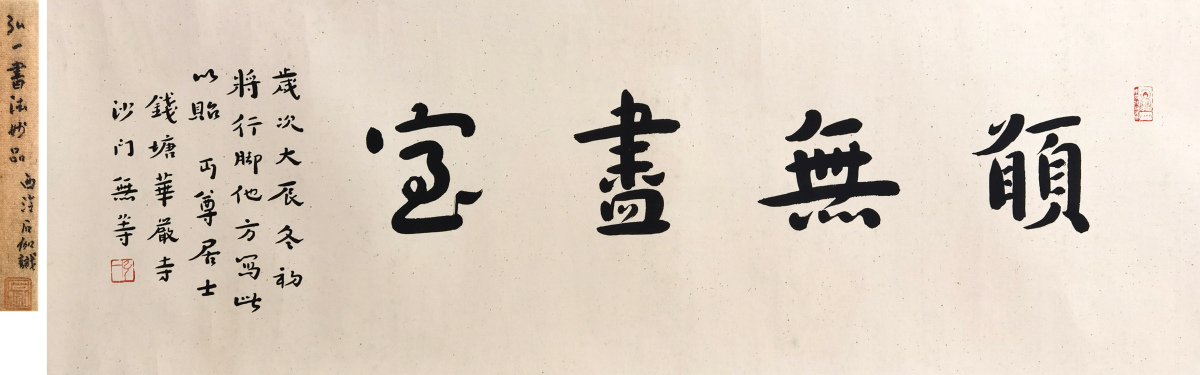 願無盡室
歲次大辰冬初
將行脚他方寫此
以貽 丏尊居士
錢塘華嚴寺
沙门無等
弘一書法妙品
西泠石伽識